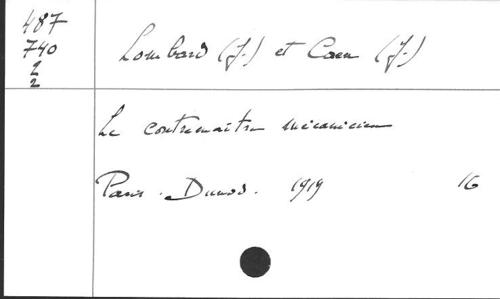 487
740
2
2
Lombard (J.) et Caen (J.)
Le contremaître mécanicien
Paris. Dunod. 1919 16